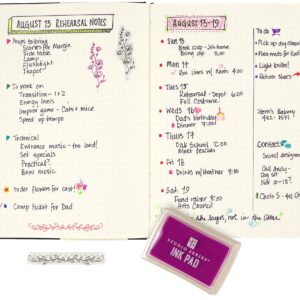 AUGUST 15 REHEARSAL NOTES
Props missing
Scarves for Margie
Side table
Lamp
Flashlight
Teapot
To work on
Transition - 1+2
Energy levels
Improv game - Cats + mice
Speed up tempo
Technical
Entrance music - too loud!
Set specials
Practical?
Bow music
order flowers for cast
Comp ticket for Dad
AUGUST 13-19
Sun 13
Book club - Jo's house
Bring dip 5:00
Mon 14
Run lines w/ Kate 4:00
Tues 15
Rehearsal - Depot 6:00
Full Costume
Weds 16
Dad's birthday
Dinner 7:00
Thurs 17
Oak School 2:00
Meet teacher
Fri 18
Drinks w/ Heather 7:30
Sat 19
Fund raiser 8:00
Arts Council
the laughs, not in the
To do:
Pick up dry
Meet
Light bulbs!
Return shoes
Stern's Bakery
Contact:
Second
Call
Day
Chris S
STUDIO SERIES
INK PAD